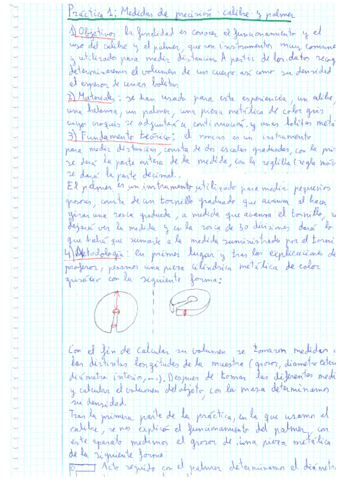 Práctica 1: Medidas de precisión - calibre y palmer
1) Objetivo: la finalidad es conocer el funcionamiento y el
uso del calibre y el palmer, que son instrumentos muy comunes
y utilizado para medir distancias. A partir de los datos
determinaremos el volumen de un cuerpo, así como su densidad
el espesor de unas bolitas.
2) Material: se han usado para esta experiencia, un calibre,
una balanza, un palmer, una pieza metálica de color gris
cuyo croquis se adjuntará a continuación y unas bolitas
3) Fundamento teórico: el es un instrumento
para medir distancias, consta de dos escalas graduadas, con la
se dará la parte entera de la medida, con la reglilla
se dará la parte decimal.
El palmer es un instrumento utilizado para medir pequeños
consta de un tornillo graduado que avanza al
girar una rosca graduada, a medida que avanza el tornillo,
dejará ver la medida y en la rosca de 50 divisiones dará lo
que habrá que sumarle a la medida suministrada por el
4) Metodología: en primer lugar y tras las explicaciones de
profesor, pesamos una pieza cilíndrica metálica de color
con la siguiente forma:
Con el fin de calcular su volumen se tomaron medidas
las distintas longitudes de la muestra (grosor, diámetro
diámetro interior, ...). Después de tomar las diferentes
y calcular el volumen del objeto, con la masa determinamos
su densidad.
Tras la primera parte de la práctica, en la que usamos el
calibre, se nos explicó el funcionamiento del palmer, con
este aparato medimos el grosor de una pieza metálica
de la siguiente forma:
Acto seguido con el palmer determinamos el